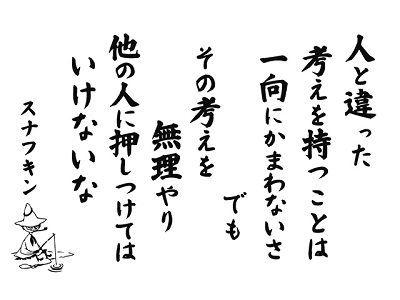 人と違った
考えを持つことは
一向にかまわないさ
でも
その考えを
無理やり
他の人に押しつけては
いけないいな
スナフキン